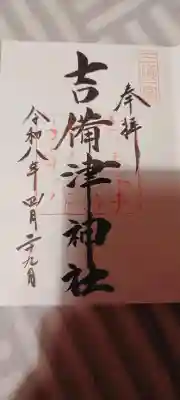 三備一宮
奉拝
吉備津神社
令和八年四月二十九日